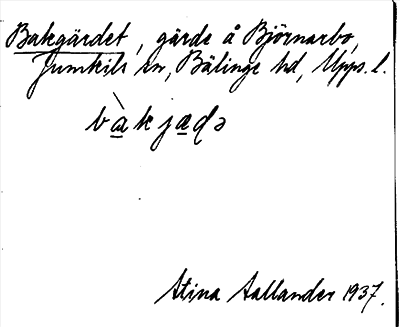 Bakgärdet, gärde å Björnarbo,
Jumkils sn, Bälinge hd, Upps. l.
bàkjædə
Stina Aallander 1937.